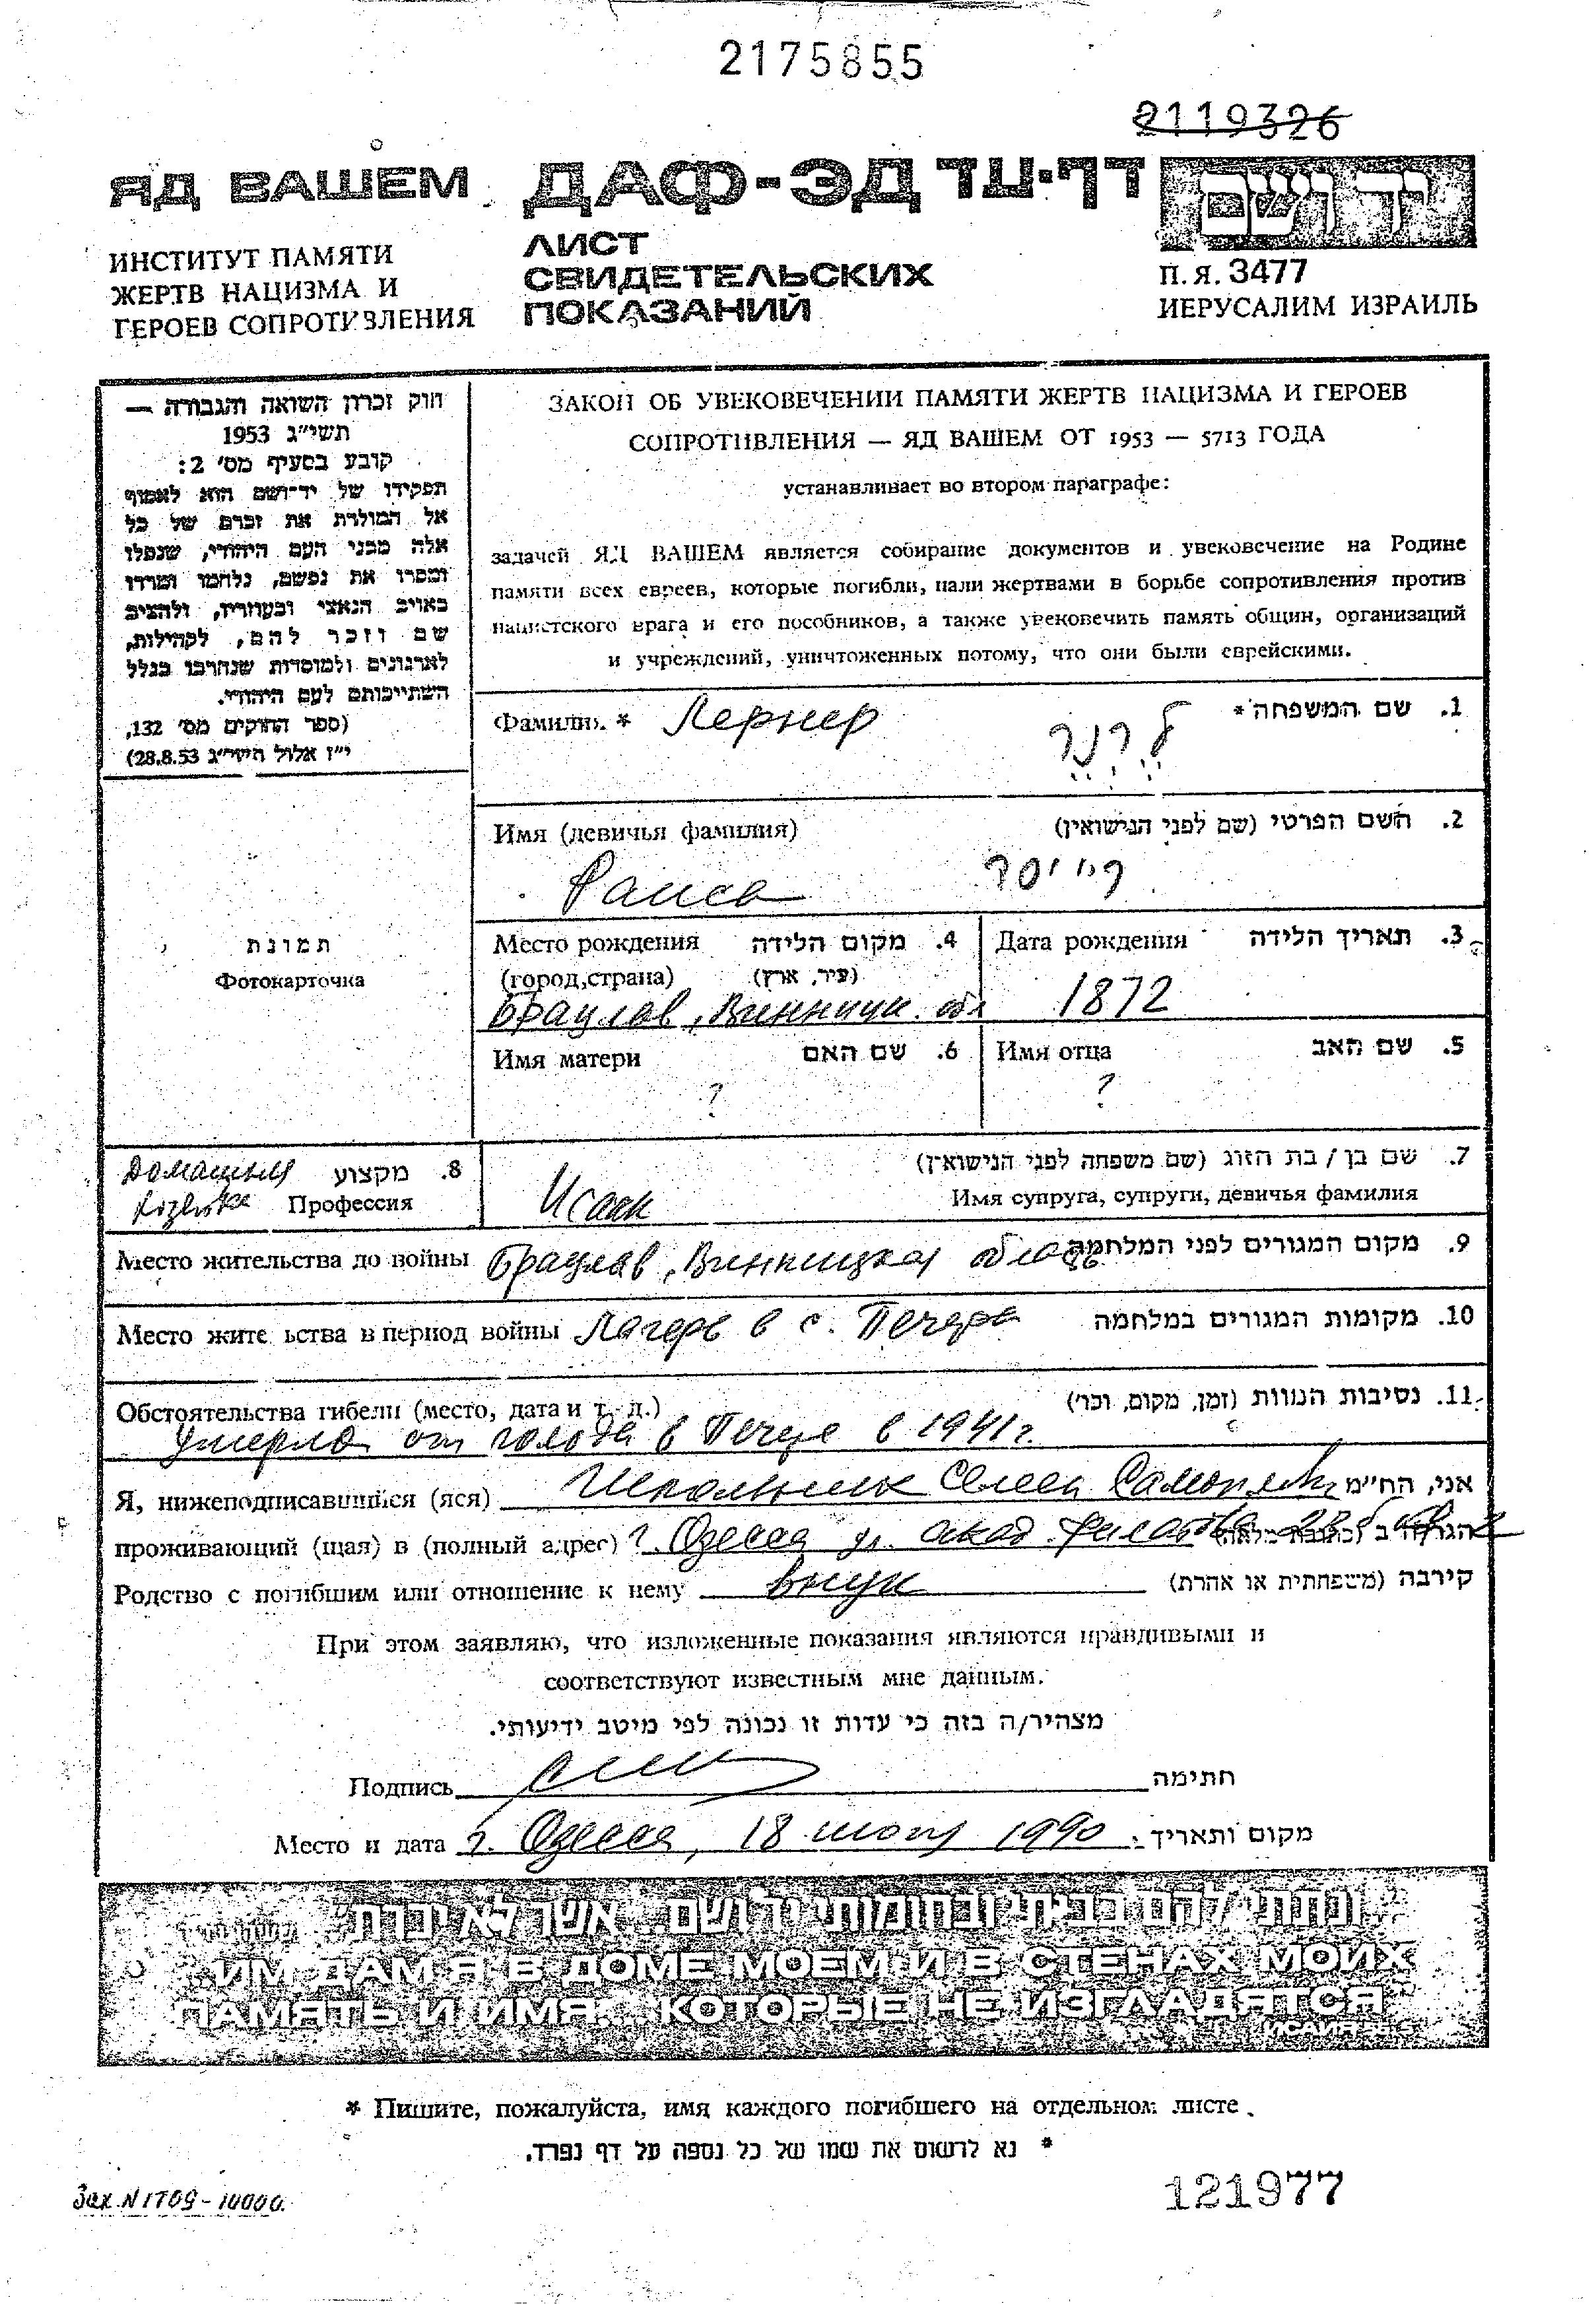 2175855
2119326
ЯД ВАШЕМ
ДАФ-ЭД דף-עד
יד ושם
ИНСТИТУТ ПАМЯТИ
ЖЕРТВ НАЦИЗМА И
ГЕРОЕВ СОПРОТИВЛЕНИЯ
ЛИСТ
СВИДЕТЕЛЬСКИХ
ПОКАЗАНИЙ
П.Я. 3477
ИЕРУСАЛИМ ИЗРАИЛЬ
חוק זכרון השואה והגבורה —
תשי״ג 1953
קובע בסעיף מס׳ 2:
תפקידו של יד־ושם הוא לאסוף
אל המולדת את זכרם של כל
אלה מבני העם היהודי, שנפלו
ומסרו את נפשם, נלחמו ומרדו
באויב הנאצי ובעוזריו, ולהציב
שם וזכר להם, לקהילות,
לארגונים ולמוסדות שנחרבו בגלל
השתייכותם לעם היהודי.
(ספר החוקים מס׳ 132,
י״ז אלול תשי״ג 28.8.53)
ЗАКОН ОБ УВЕКОВЕЧЕНИИ ПАМЯТИ ЖЕРТВ НАЦИЗМА И ГЕРОЕВ
СОПРОТИВЛЕНИЯ — ЯД ВАШЕМ ОТ 1953 — 5713 ГОДА
устанавливает во втором параграфе:
задачей ЯД ВАШЕМ является собирание документов и увековечение на Родине
памяти всех евреев, которые погибли, пали жертвами в борьбе сопротивления против
нацистского врага и его пособников, а также увековечить память общин, организаций
и учреждений, уничтоженных потому, что они были еврейскими.
Фамилия * Лернер לרנר 1. שם המשפחה*
Имя (девичья фамилия) 2. השם הפרטי (שם לפני הנישואין)
Раиса
תמונת
Фотокарточка
Место рождения 4. מקום הלידה
(город,страна) (עיר, ארץ)
Брацлав, Винницк. обл
Дата рождения 3. תאריך הלידה
1872
Имя матери 6. שם האם
?
Имя отца 5. שם האב
?
Домашняя 8. מקצוע
хозяйка Профессия
7. שם בן / בת הזוג (שם משפחה לפני הנישואין)
Исаак Имя супруга, супруги, девичья фамилия
Место жительства до войны Брацлав, Винницкая область 9. מקום המגורים לפני המלחמה
Место жите ьства в период войны Лагерь в с. Печера 10. מקומות המגורים במלחמה
Обстоятельства гибели (место, дата и т. д.) 11. נסיבות המוות (זמן, מקום, וכו׳)
Умерла от голода в Печере в 1941г.
Я, нижеподписавшийся (яся) Школьник Семен אני, החי״מ
проживающий (щая) в (полный адрес) г. Одесса ул. акад. Филатова
Родство с погибшим или отношение к нему внук קירבה (משפחתית או אחרת)
При этом заявляю, что изложенные показания являются правдивыми и
соответствуют известным мне данным.
מצהיר/ה בזה כי עדות זו נכונה לפי מיטב ידיעותי.
Подпись חתימה
Место и дата г. Одесса, 18 июня 1990 מקום ותאריך
ונתתי להם בביתי ובחומותי יד ושם... אשר לא יכרת
ИМ ДАМ Я В ДОМЕ МОЕМ И В СТЕНАХ МОИХ
ПАМЯТЬ И ИМЯ... КОТОРЫЕ НЕ ИЗГЛАДЯТСЯ
* Пишите, пожалуйста, имя каждого погибшего на отдельном листе.
* נא לרשום את שמו של כל נספה על דף נפרד.
Зак. N 1709-10000.
121977